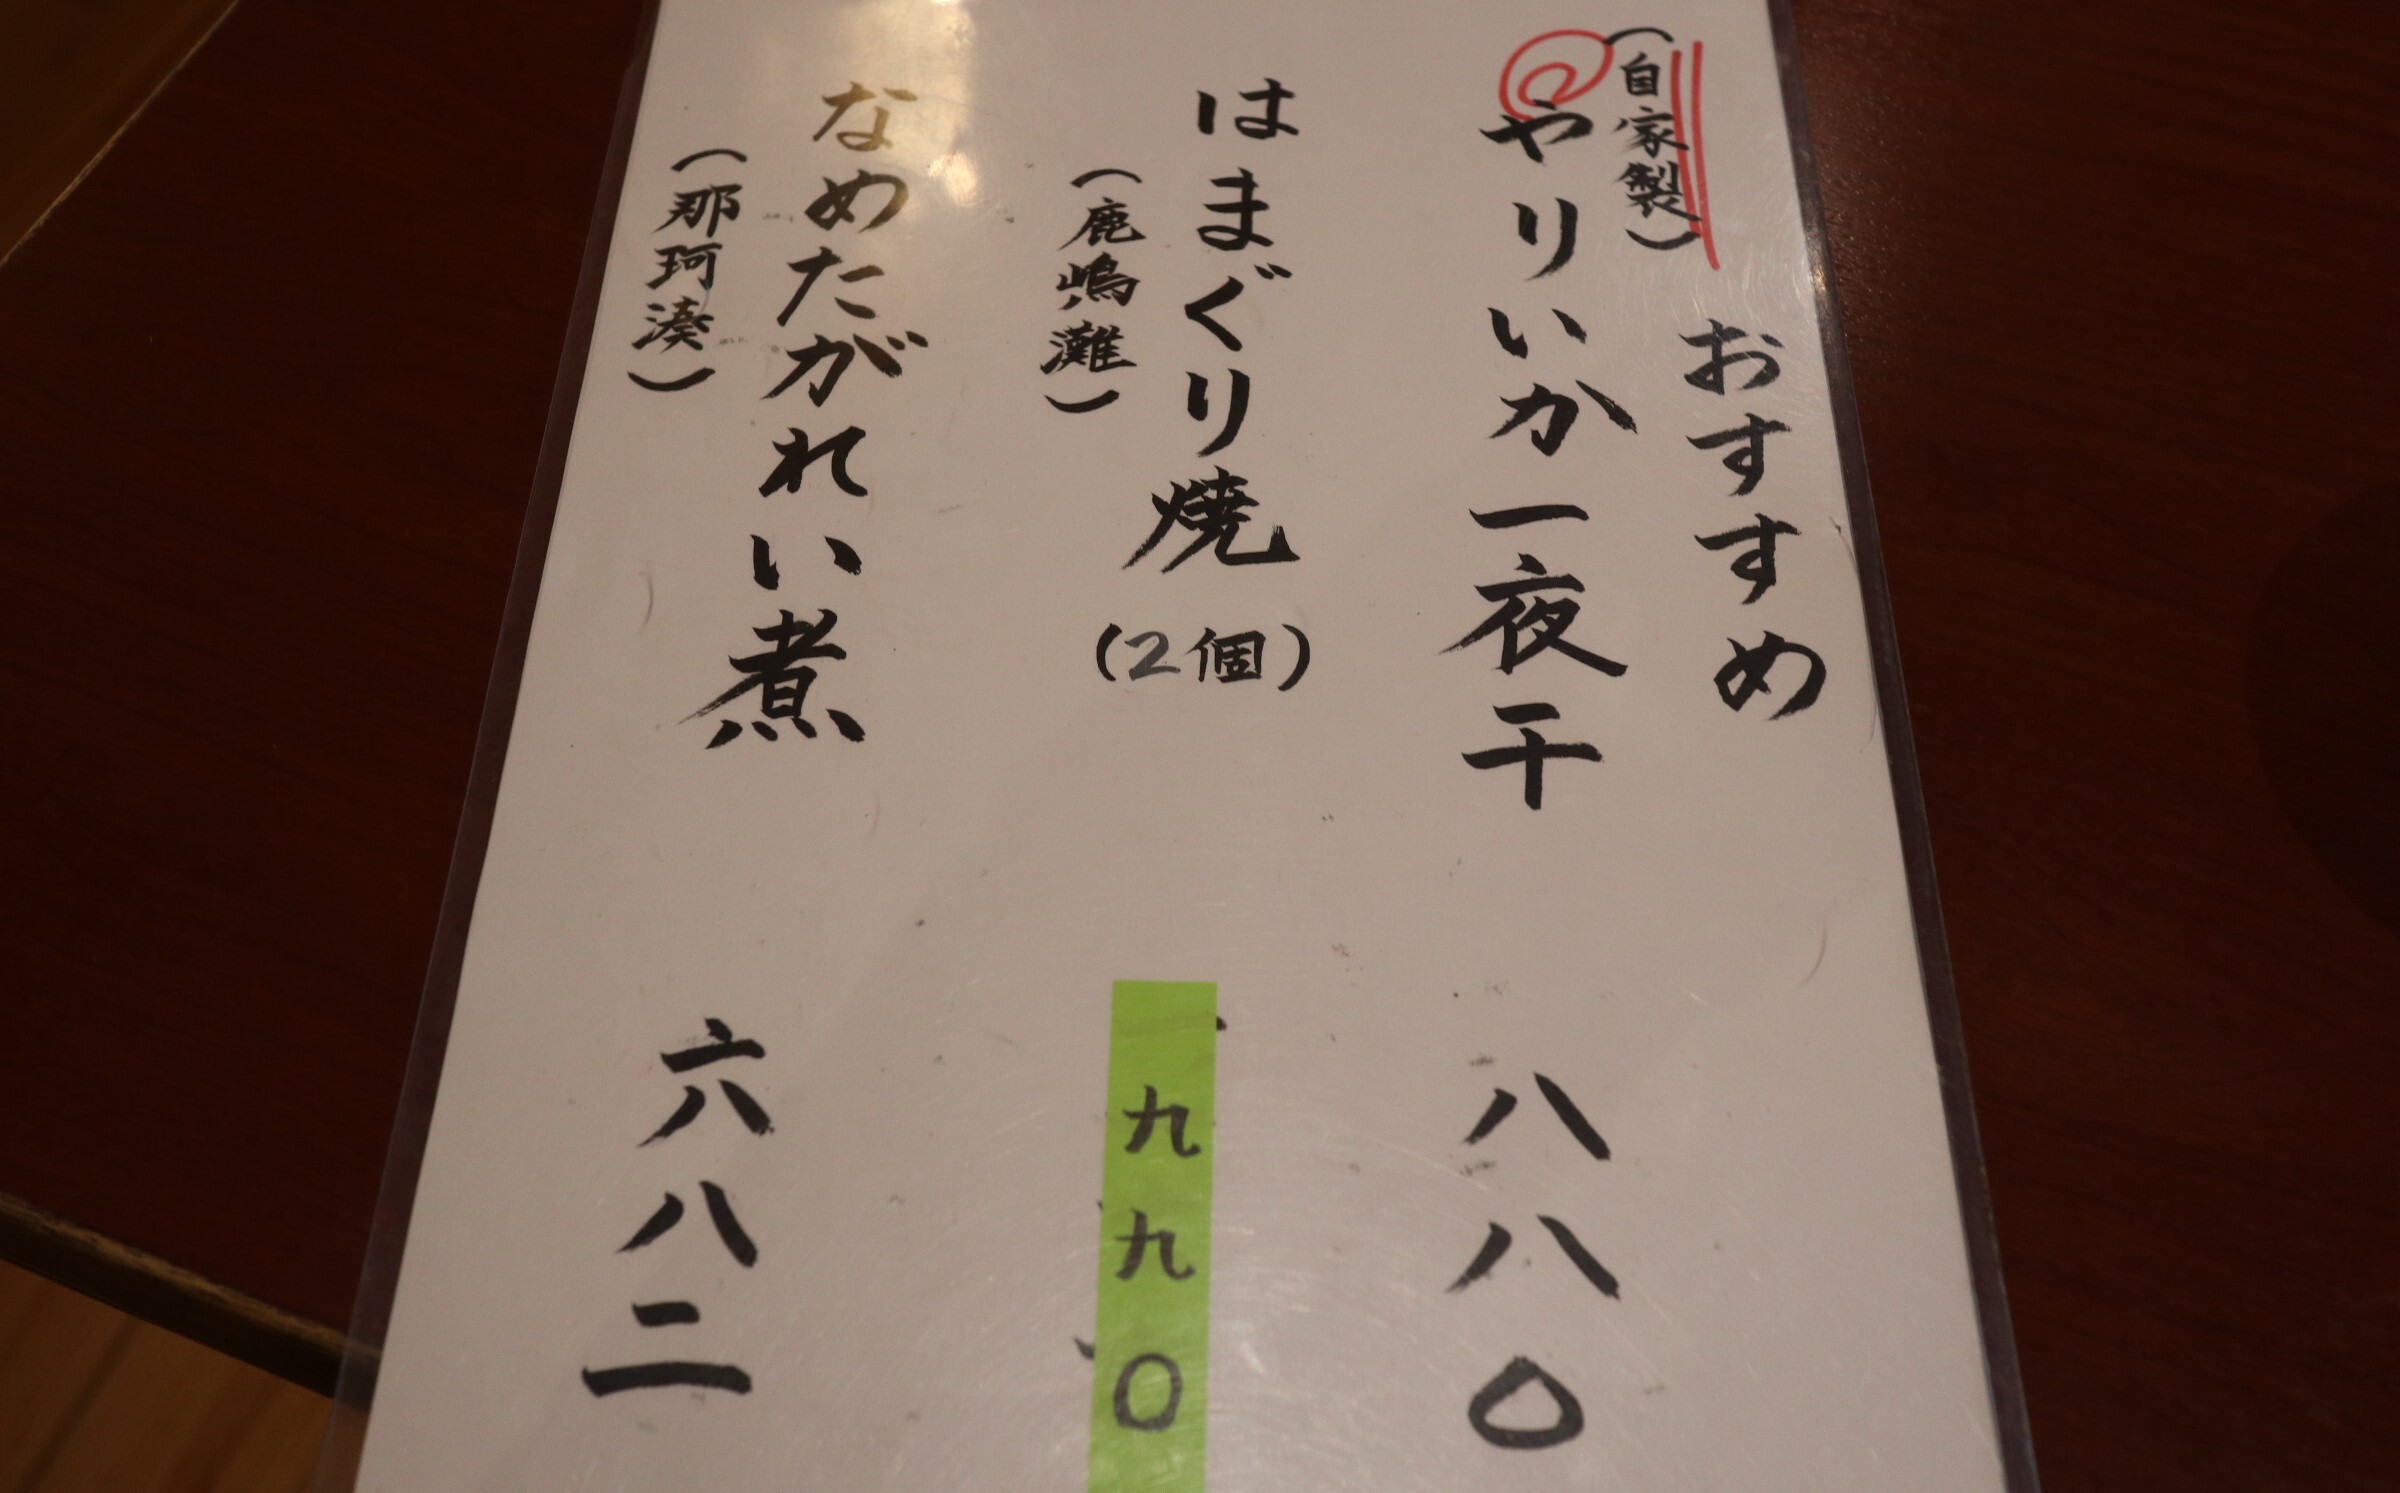 おすすめ
(自家製)
やりいか一夜干 八八〇
はまぐり焼(2個) 九九〇
(鹿嶋灘)
なめたがれい煮 六八二
(那珂湊)